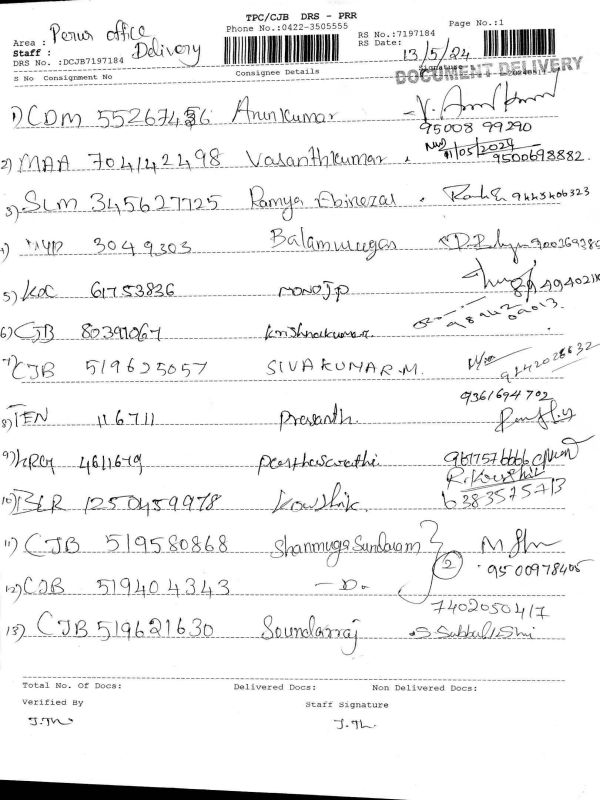 TPC/CJB DRS - PRR
Phone No.:0422-3505555 Page No.:1
Area : Perur office RS No.:7197184
Staff : Delivery RS Date: 13/5/24
DRS No. :DCJB7197184
DOCUMENT DELIVERY
S No Consignment No Consignee Details Signature
1) CDM 55267456 Arunkumar
95008 99290
2) MAA 704142498 Vasanthkumar 11/05/2024
9500698882.
3) SLM 345627725 Ramya Ebinezar 9445406323
4) 3049303 Balamurugan
5) KOC 61753836 MONOJ.P
6) CJB 80391067 Krishnakumar.
7) CJB 519625057 SIVAKUMAR.M. 9442028632
9361694702
8) TEN 116711 Prasanth.
9) 4611679 Parthasarathi
R.Kowshik
10) BLR 1250459978 Kowshik. 6383575713
11) CJB 519580868 Shanmuga Sundaram
2 9500978405
12) CJB 519404343 -D.
7402050417
13) CJB 519621630 Soundarraj S.Subbulakshmi
Total No. Of Docs: Delivered Docs: Non Delivered Docs:
Verified By Staff Signature